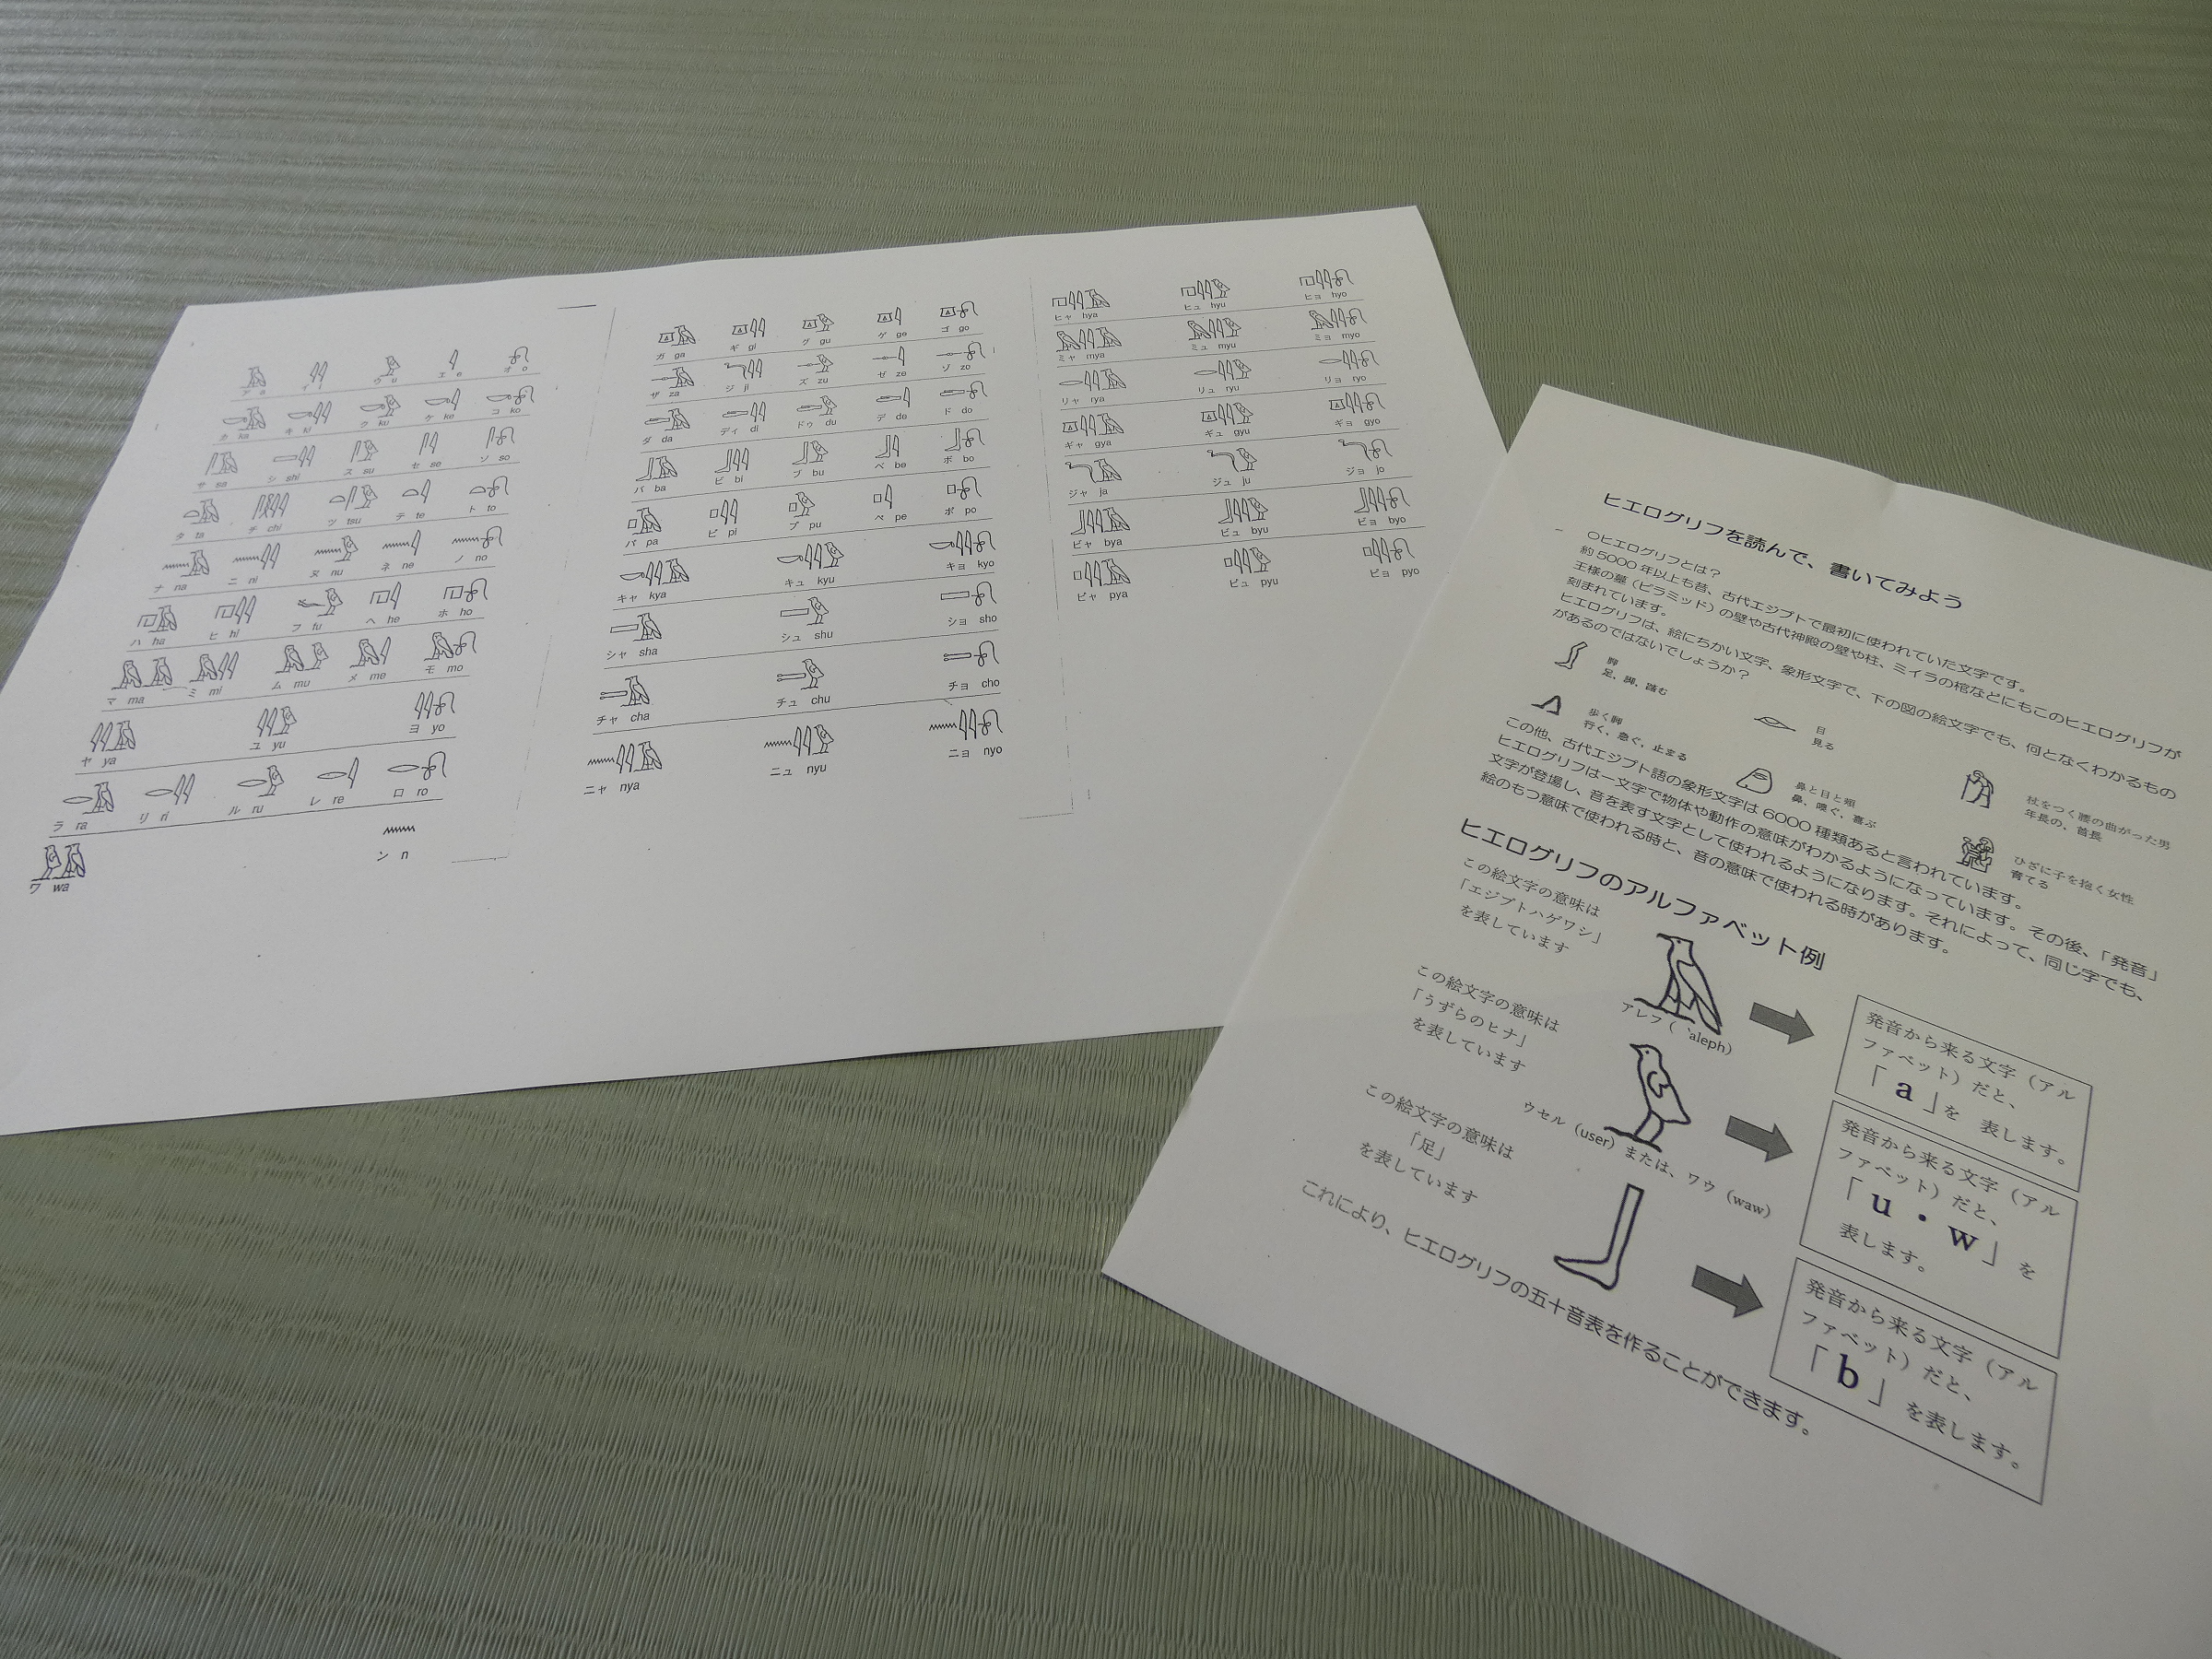 ア a イ i ウ u エ e オ o
カ ka キ ki ク ku ケ ke コ ko
サ sa シ shi ス su セ se ソ so
タ ta チ chi ツ tsu テ te ト to
ナ na ニ ni ヌ nu ネ ne ノ no
ハ ha ヒ hi フ fu ヘ he ホ ho
マ ma ミ mi ム mu メ me モ mo
ヤ ya ユ yu ヨ yo
ラ ra リ ri ル ru レ re ロ ro
ワ wa ン n
ガ ga ギ gi グ gu ゲ ge ゴ go
ザ za ジ ji ズ zu ゼ ze ゾ zo
ダ da ディ di ドゥ du デ de ド do
バ ba ビ bi ブ bu ベ be ボ bo
パ pa ピ pi プ pu ペ pe ポ po
キャ kya キュ kyu キョ kyo
シャ sha シュ shu ショ sho
チャ cha チュ chu チョ cho
ニャ nya ニュ nyu ニョ nyo
ヒャ hya ヒュ hyu ヒョ hyo
ミャ mya ミュ myu ミョ myo
リャ rya リュ ryu リョ ryo
ギャ gya ギュ gyu ギョ gyo
ジャ ja ジュ ju ジョ jo
ビャ bya ビュ byu ビョ byo
ピャ pya ピュ pyu ピョ pyo
ヒエログリフを読んで、書いてみよう
○ヒエログリフとは?
約5000年以上も昔、古代エジプトで最初に使われていた文字です。
王様の墓(ピラミッド)の壁や古代神殿の壁や柱、ミイラの棺などにもこのヒエログリフが
刻まれています。
ヒエログリフは、絵にちかい文字、象形文字で、下の図の絵文字でも、何となくわかるもの
があるのではないでしょうか?
脚
足、脚、踏む
目
見る
杖をつく腰の曲がった男
年長の、首長
歩く脚
行く、急ぐ、止まる
鼻と目と頬
鼻、嗅ぐ、喜ぶ
ひざに子を抱く女性
育てる
この他、古代エジプト語の象形文字は6000種類あると言われています。
ヒエログリフは一文字で物体や動作の意味がわかるようになっています。その後、「発音」
文字が登場し、音を表す文字として使われるようになります。それによって、同じ字でも、
絵のもつ意味で使われる時と、音の意味で使われる時があります。
ヒエログリフのアルファベット例
この絵文字の意味は
「エジプトハゲワシ」
を表しています
アレフ( ʼaleph)
発音から来る文字(アル
ファベット)だと、
「a」を 表します。
この絵文字の意味は
「うずらのヒナ」
を表しています
ウセル(user)または、ワウ(waw)
発音から来る文字(アル
ファベット)だと、
「u・w」を
表します。
この絵文字の意味は
「足」
を表しています
発音から来る文字(アル
ファベット)だと、
「b」を表します。
これにより、ヒエログリフの五十音表を作ることができます。